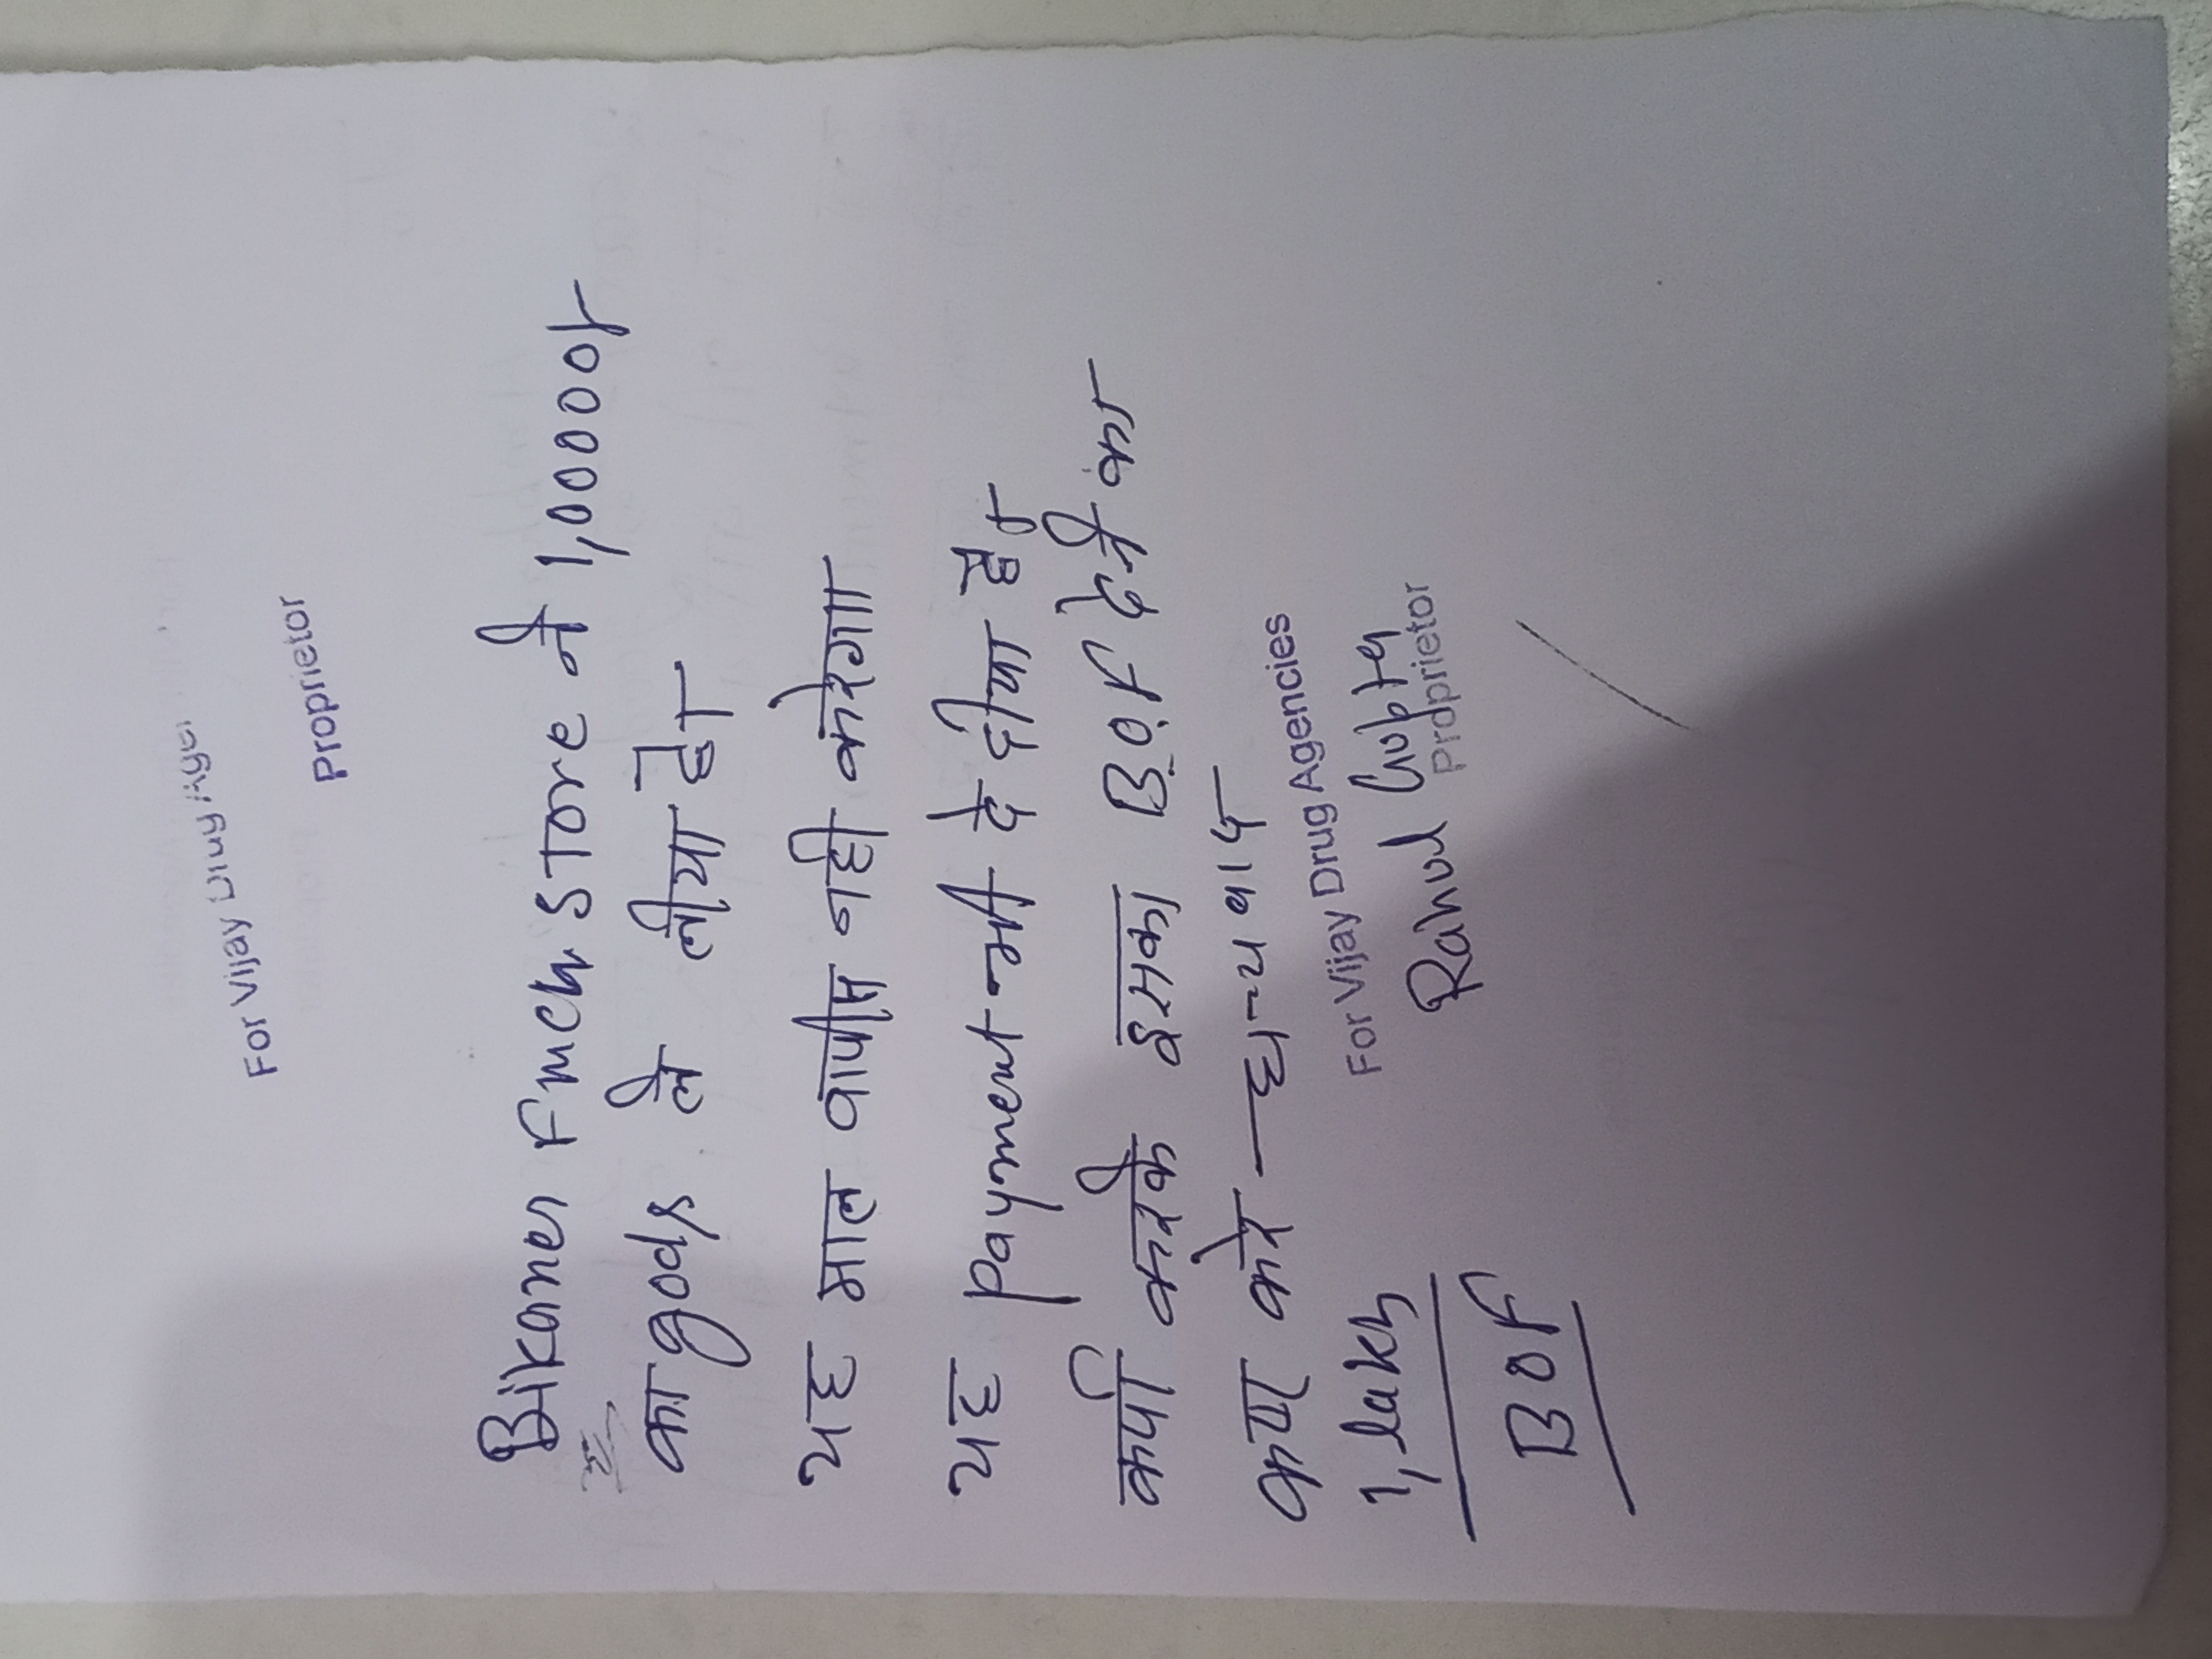 For Vijay Drug
Proprietor
Bikaner Fmch STore ने 1,00000/-
का goods ले लीया है।
यह माल वापीस नही करेगा
यह Payment भी दे दीया है।
कपी करके इसका B.O.F देने का
कपा करे — धान्यवाद
For Vijay Drug Agencies
Rahul Gupta
Proprietor
1, Lakh
BOF